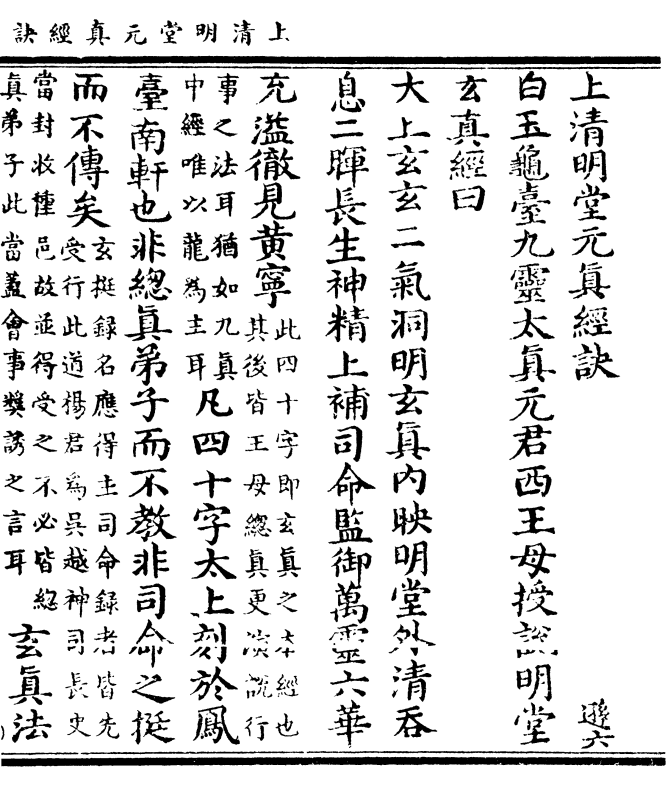 上清明堂元真經訣
上清明堂元真經訣
遜六
白玉龜臺九靈太真元君西王母授說明堂
玄真經曰
大上玄玄二氣洞明玄真內映明堂外清吞
息二暉長生神精上補司命監御萬靈六華
充溢徹見黃寧
此四十字即玄真之本經也
其後皆王母總真更演說行
事之法耳猶如九真
中經唯以龍為主耳
凡四十字太上刻於鳳
臺南軒也非總真弟子而不教非司命之挺
而不傳矣
玄挺録名應得主司命録者皆先
受行此道楊君為吳越神司長史
當封收揰邑故並得受之不必皆總
真弟子此當蓋會事獎誘之言耳
玄真法